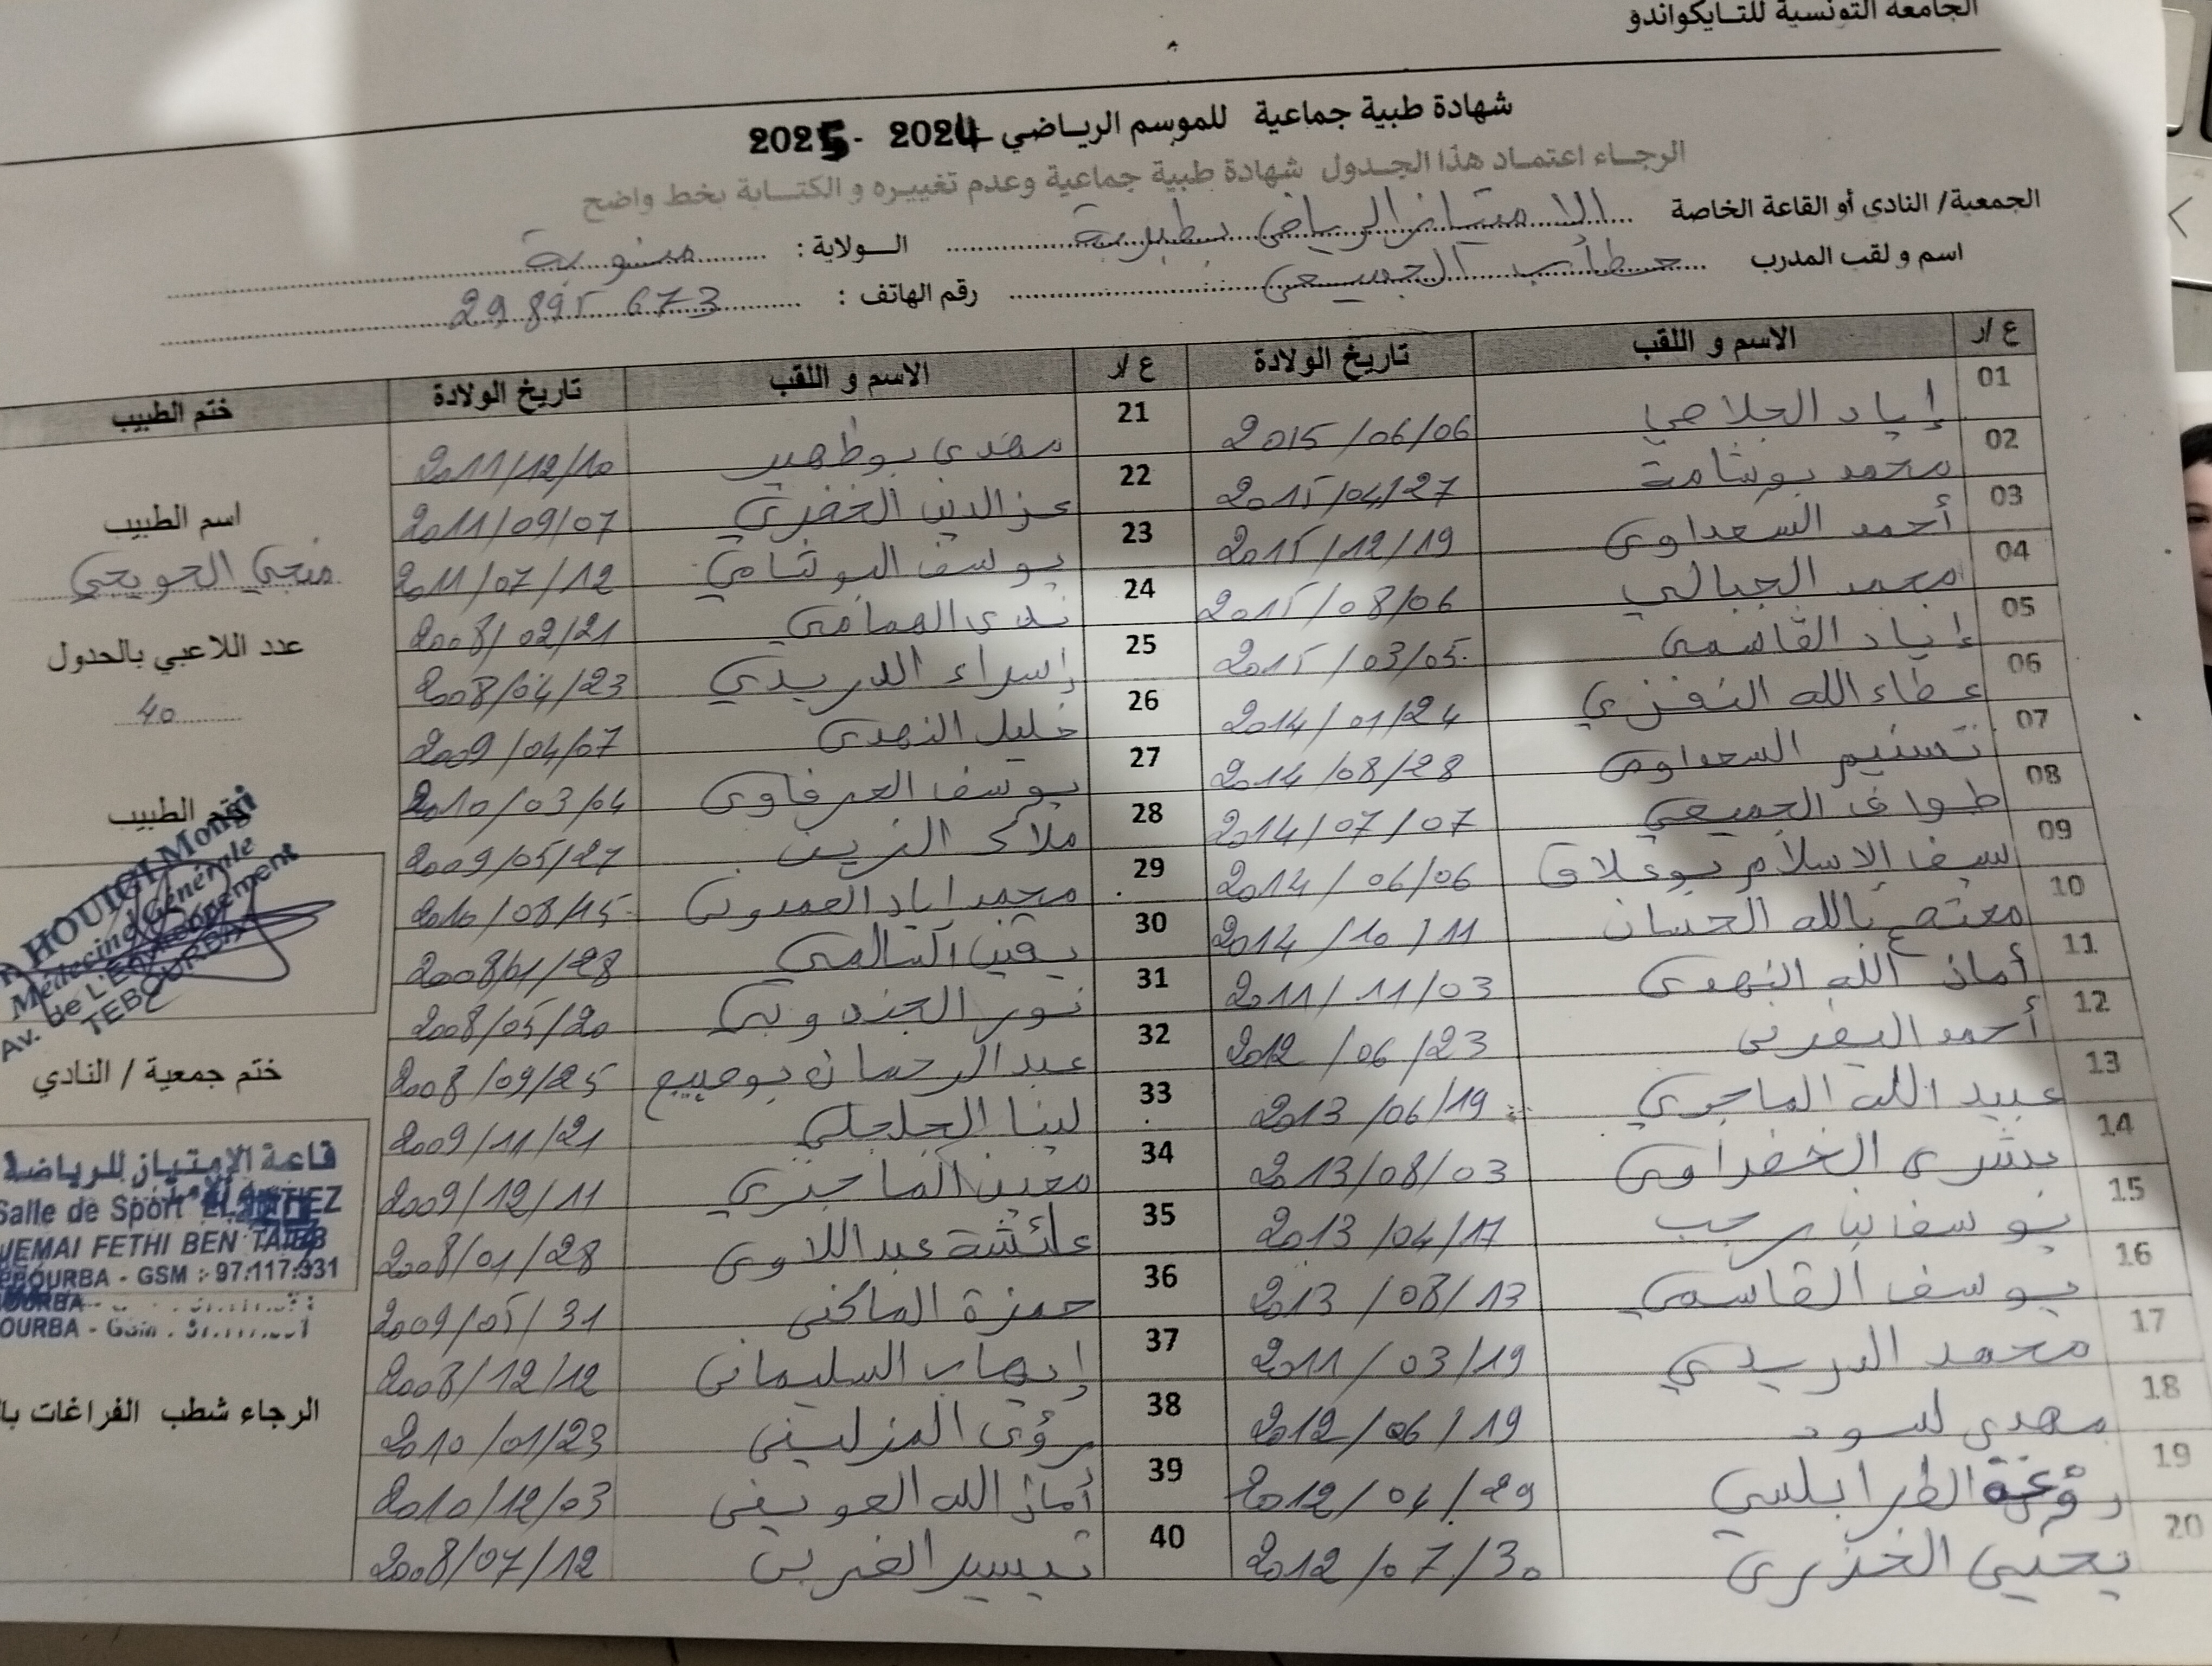 الجامعة التونسية للتايكواندو
شهادة طبية جماعية للموسم الرياضي 2024 - 2025
الرجاء اعتماد هذا الجدول شهادة طبية جماعية وعدم تغييره و الكتابة بخط واضح
الجمعية/ النادي أو القاعة الخاصة الامتياز الرياضي بطبربة الولاية : منوبة
اسم و لقب المدرب خطاب الجميعي رقم الهاتف : 29895673
ع/ر الاسم و اللقب تاريخ الولادة ع/ر الاسم و اللقب تاريخ الولادة ختم الطبيب
01 إياد الجلاصي 2015/06/06 21 مهدي بوظهير 2011/12/10
02 محمد بوشامة 2015/04/27 22 عز الدين الخضري 2011/09/07
03 أحمد السعداوي 2015/12/19 23 يوسف البوثامي 2011/07/12
04 محمد الجبالي 2015/08/06 24 ندى الهمامي 2008/02/21
05 إياد القاسمي 2015/03/05 25 إسراء الدريدي 2008/04/23
06 عطاء الله النفزي 2014/01/24 26 خليل النهدي 2009/04/07
07 تسنيم السعداوي 2014/08/28 27 يوسف العرفاوي 2010/03/04
08 طواف الجميعي 2014/07/07 28 ملاك الزين 2009/05/27
09 سيف الإسلام بوعلاق 2014/06/06 29 محمد إياد العمدوني 2010/08/15
10 بالله الحسان 2014/10/11 30 يقين السالمي 2008/01/28
11 أمان الله النهدي 2011/11/03 31 نور الجندوبي 2008/05/20
12 أحمد اليفرني 2012/06/23 32 عبد الرحمان 2008/09/25
13 عبيد الله الماجري 2013/06/19 33 لينا الجلجلي 2009/11/21
14 بشرى الخضراوي 2013/08/03 34 معين الماجري 2009/12/11
15 يوسف بن رجب 2013/04/17 35 عائشة عبداللاوي 2008/01/28
16 يوسف القاسمي 2013/08/13 36 حمزة الماكني 2009/05/31
17 محمد الدريدي 2011/03/19 37 إيهاب السليماني 2008/12/12
18 مهدي لسود 2012/06/19 38 رؤى المزليني 2010/01/23
19 الطرابلسي 2012/04/29 39 أمان الله العويني 2010/12/03
20 يحيى الخزري 2012/07/30 40 تيسير الغربي 2008/07/12
اسم الطبيب
منجي الحويجي
عدد اللاعبي بالجدول
40
ختم الطبيب
HOUIGI Mongi
Médecine Générale
Av. de L'Environnement
TEBOURBA
ختم جمعية / النادي
قاعة الإمتياز للرياضة
Salle de Sport EL IMTIEZ
JEMAI FETHI BEN TAIEB
TEBOURBA - GSM : 97.117.331
الرجاء شطب الفراغات